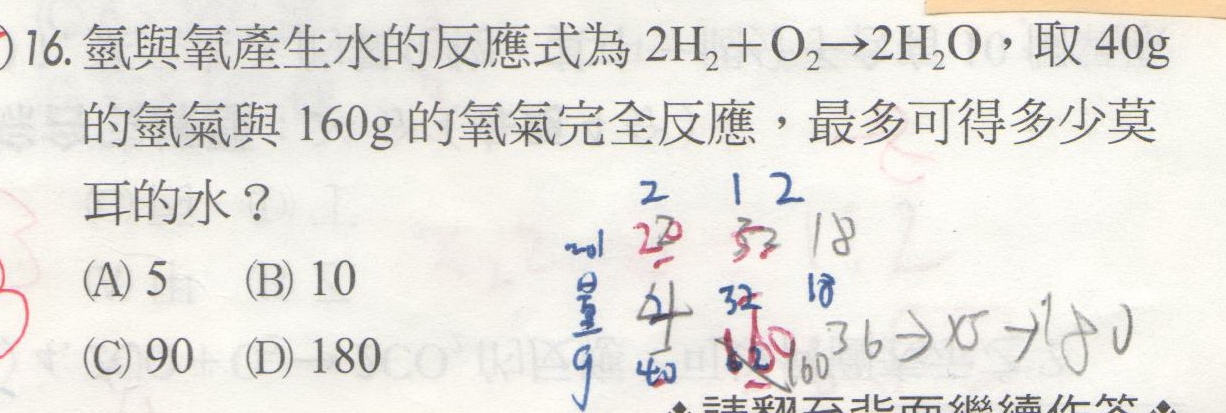 16. 氫與氧產生水的反應式為 2H₂+O₂→2H₂O，取 40g
的氫氣與 160g 的氧氣完全反應，最多可得多少莫
耳的水？
(A) 5 (B) 10
(C) 90 (D) 180
2 1 2
32 18
量 4 32 18
g 40 160 36→x5→180
◆請翻至背面繼續作答◆